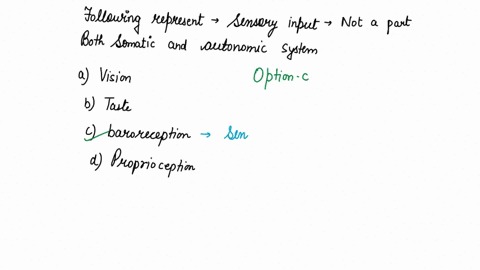 Following represent → Sensory input → Not a part
Both Somatic and autonomic system
a) Vision
Option-c
b) Taste
c) baroreception → Sen
d) Proprioception